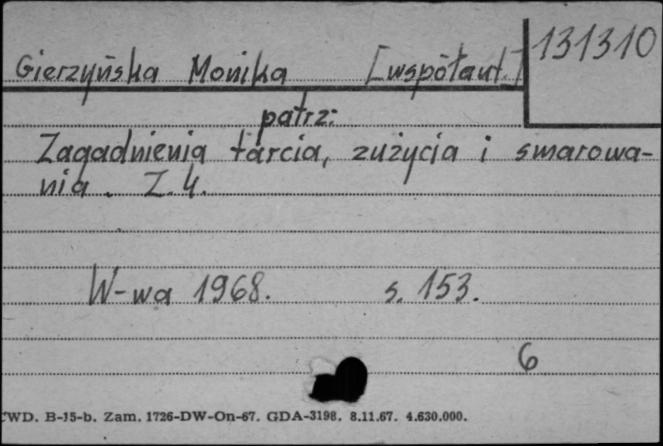 131310
Gierzyńska Monika [współaut.]
patrz:
Zagadnienia tarcia, zużycia i smarowa-
nia. Z. 4.
W-wa 1968. s. 153.
6
WD. B-15-b. Zam. 1726-DW-On-67. GDA-3198. 8.11.67. 4.630.000.